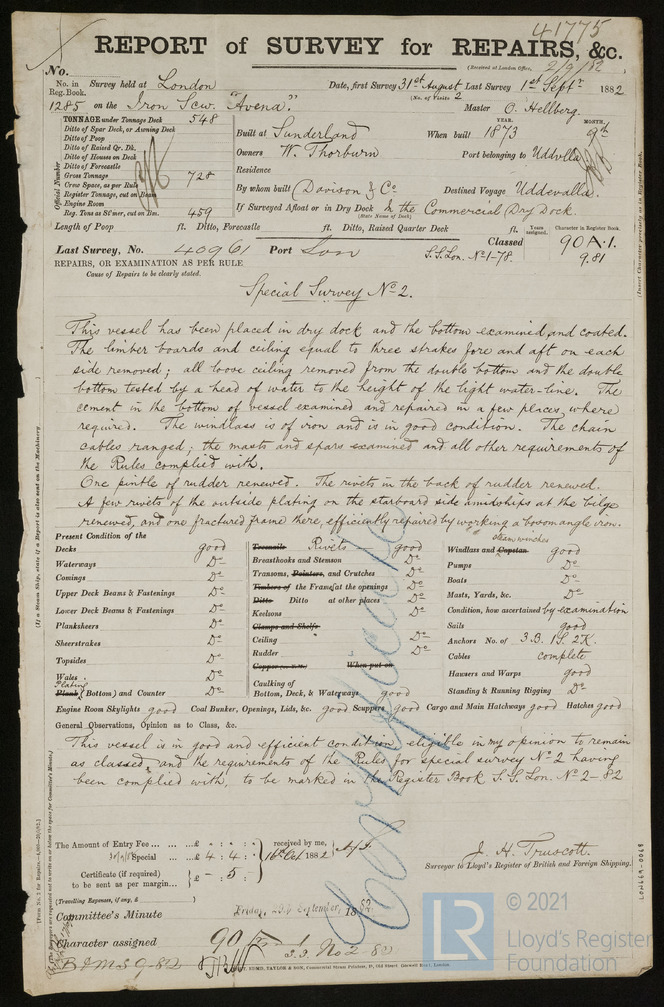 41775
REPORT of SURVEY for REPAIRS, &c.
(Received at London Office, 2/9/82
No.
No. in Reg. Book. Survey held at London Date, first Survey 31st August Last Survey 1st Septr 1882
(No. of Visits 2
1285 on the Iron Scw. "Avena". Master O. Hellberg.
TONNAGE under Tonnage Deck 548
Ditto of Spar Deck, or Awning Deck
Ditto of Poop
Ditto of Raised Qr. Dk.
Ditto of Houses on Deck
Ditto of Forecastle
Gross Tonnage 728
Crew Space, as per Rule
Register Tonnage, cut on Beam
Engine Room
Reg. Tons as St'mer, cut on Bm. 459
Official Number
Built at Sunderland When built YEAR. 1873 MONTH. 9th
Owners W. Thorburn Port belonging to Uddvlla
Residence
By whom built Davison & Co Destined Voyage Uddevalla.
If Surveyed Afloat or in Dry Dock In the Commercial Dry Dock.
(State Name of Dock)
Length of Poop ft. Ditto, Forecastle ft. Ditto, Raised Quarter Deck ft.
Last Survey, No. 40961 Port Lon Classed Years assigned. Character in Register Book. 90 A.1.
S.S. Lon. No 1-78. 9.81
REPAIRS, OR EXAMINATION AS PER RULE
Cause of Repairs to be clearly stated.
Special Survey No 2.
This vessel has been placed in dry dock and the bottom examined, and coated.
The limber boards and ceiling equal to three strakes fore and aft on each
side removed; all loose ceiling removed from the double bottom and the double
bottom tested by a head of water to the height of the light water-line. The
cement in the bottom of vessel examined and repaired in a few places, where
required. The windlass is of iron and is in good condition. The chain
cables ranged; the masts and spars examined and all other requirements of
the Rules complied with.
One pintle of rudder renewed. The rivets in the back of rudder renewed.
A few rivets of the outside plating on the starboard side amidships at the bilge
renewed, and one fractured frame there, efficiently repaired by working a bosom angle iron.
Present Condition of the
Decks good
Waterways Do
Comings Do
Upper Deck Beams & Fastenings Do
Lower Deck Beams & Fastenings Do
Planksheers Do
Sheerstrakes Do
Topsides Do
Wales Do
Plating
Plank (Bottom) and Counter Do
Treenails Rivets good
Breasthooks and Stemson Do
Transoms, Pointers, and Crutches Do
Timbers of the Frame at the openings Do
Ditto Ditto at other places Do
Keelsons Do
Clamps and Shelfs
Ceiling Do
Rudder Do
Copper When put on
Caulking of
Bottom, Deck, & Waterways good
steam winches
Windlass and Capstan good
Pumps Do
Boats Do
Masts, Yards, &c. Do
Condition, how ascertained by examination
Sails good
Anchors No. of 3.B. 1S. 2K.
Cables complete
Hawsers and Warps good
Standing & Running Rigging Do
Engine Room Skylights good Coal Bunker, Openings, Lids, &c. good Scuppers good Cargo and Main Hatchways good Hatches good
General Observations, Opinion as to Class, &c.
This vessel is in good and efficient condition eligible in my opinion to remain
as classed, and the requirements of the Rules for special survey No 2 having
been complied with, to be marked in the Register Book S.S. Lon. No 2-82
The Amount of Entry Fee £ : :
Special £ 4 : 4 :
Certificate (if required) £ - : 5 :
to be sent as per margin
received by me,
16th Oct 1882
(Travelling Expenses, if any, £
J. H. Truscott.
Surveyor to Lloyd's Register of British and Foreign Shipping.
Committee's Minute Friday, September, 1882
Character assigned 90
S.S. No 2-82
B&MS 9-82
LON669-0068
© 2021
LR Lloyd's Register
Foundation